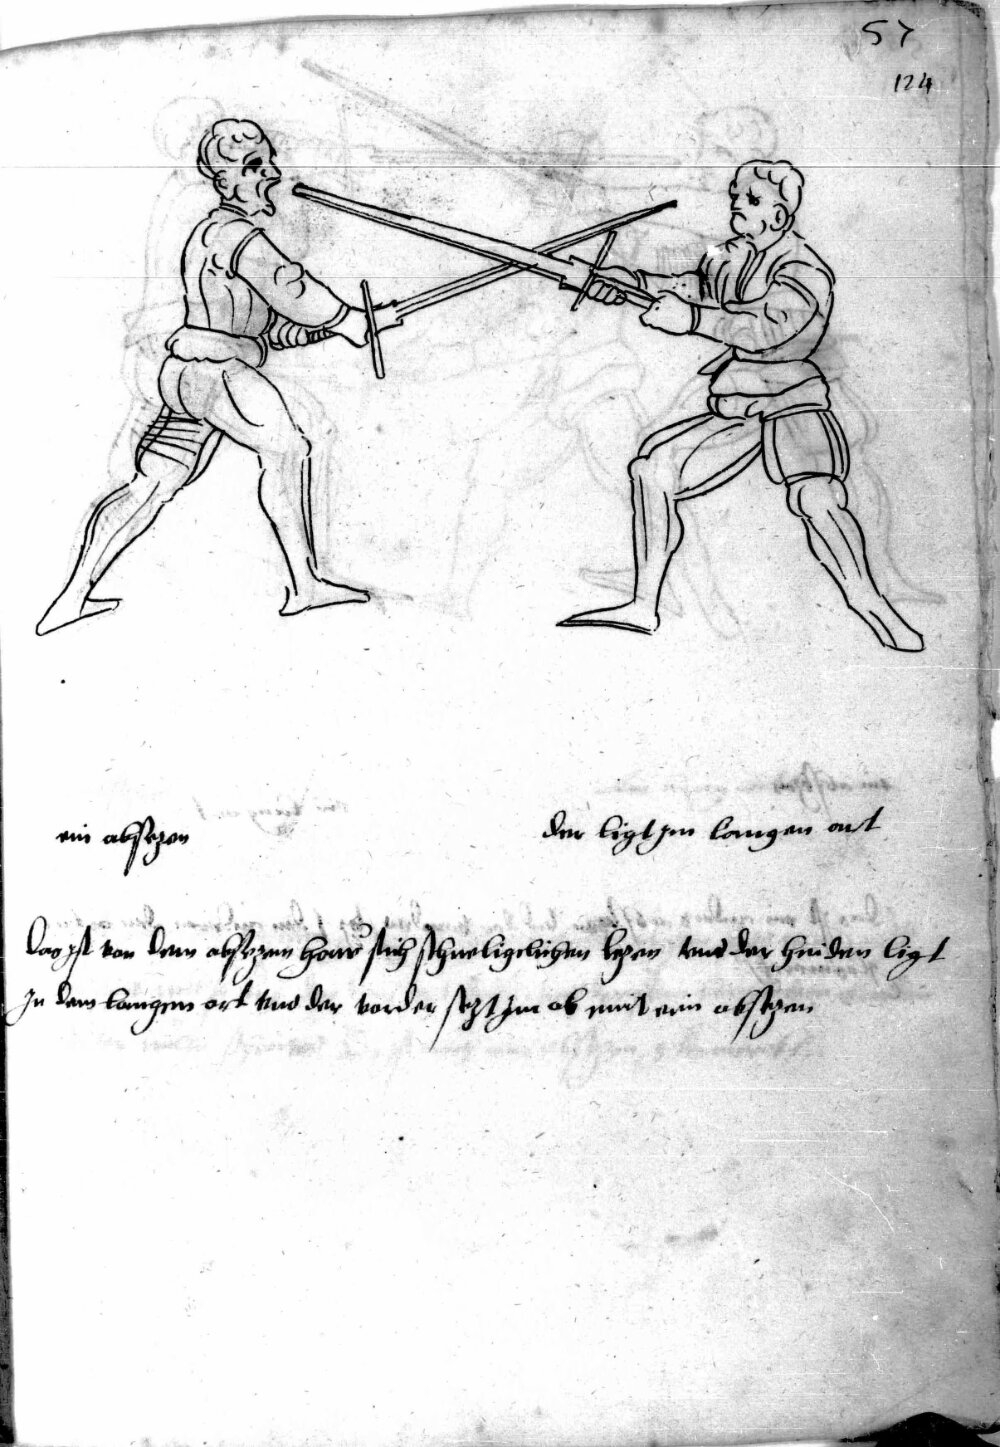 57
124
ein absezen
der ligt Im langen ort
das Ist von dem absezen haw stich schneligclichen lezen und der hinden ligt
In dem langen ort und der vorder sezt Im ab mit ein absezen